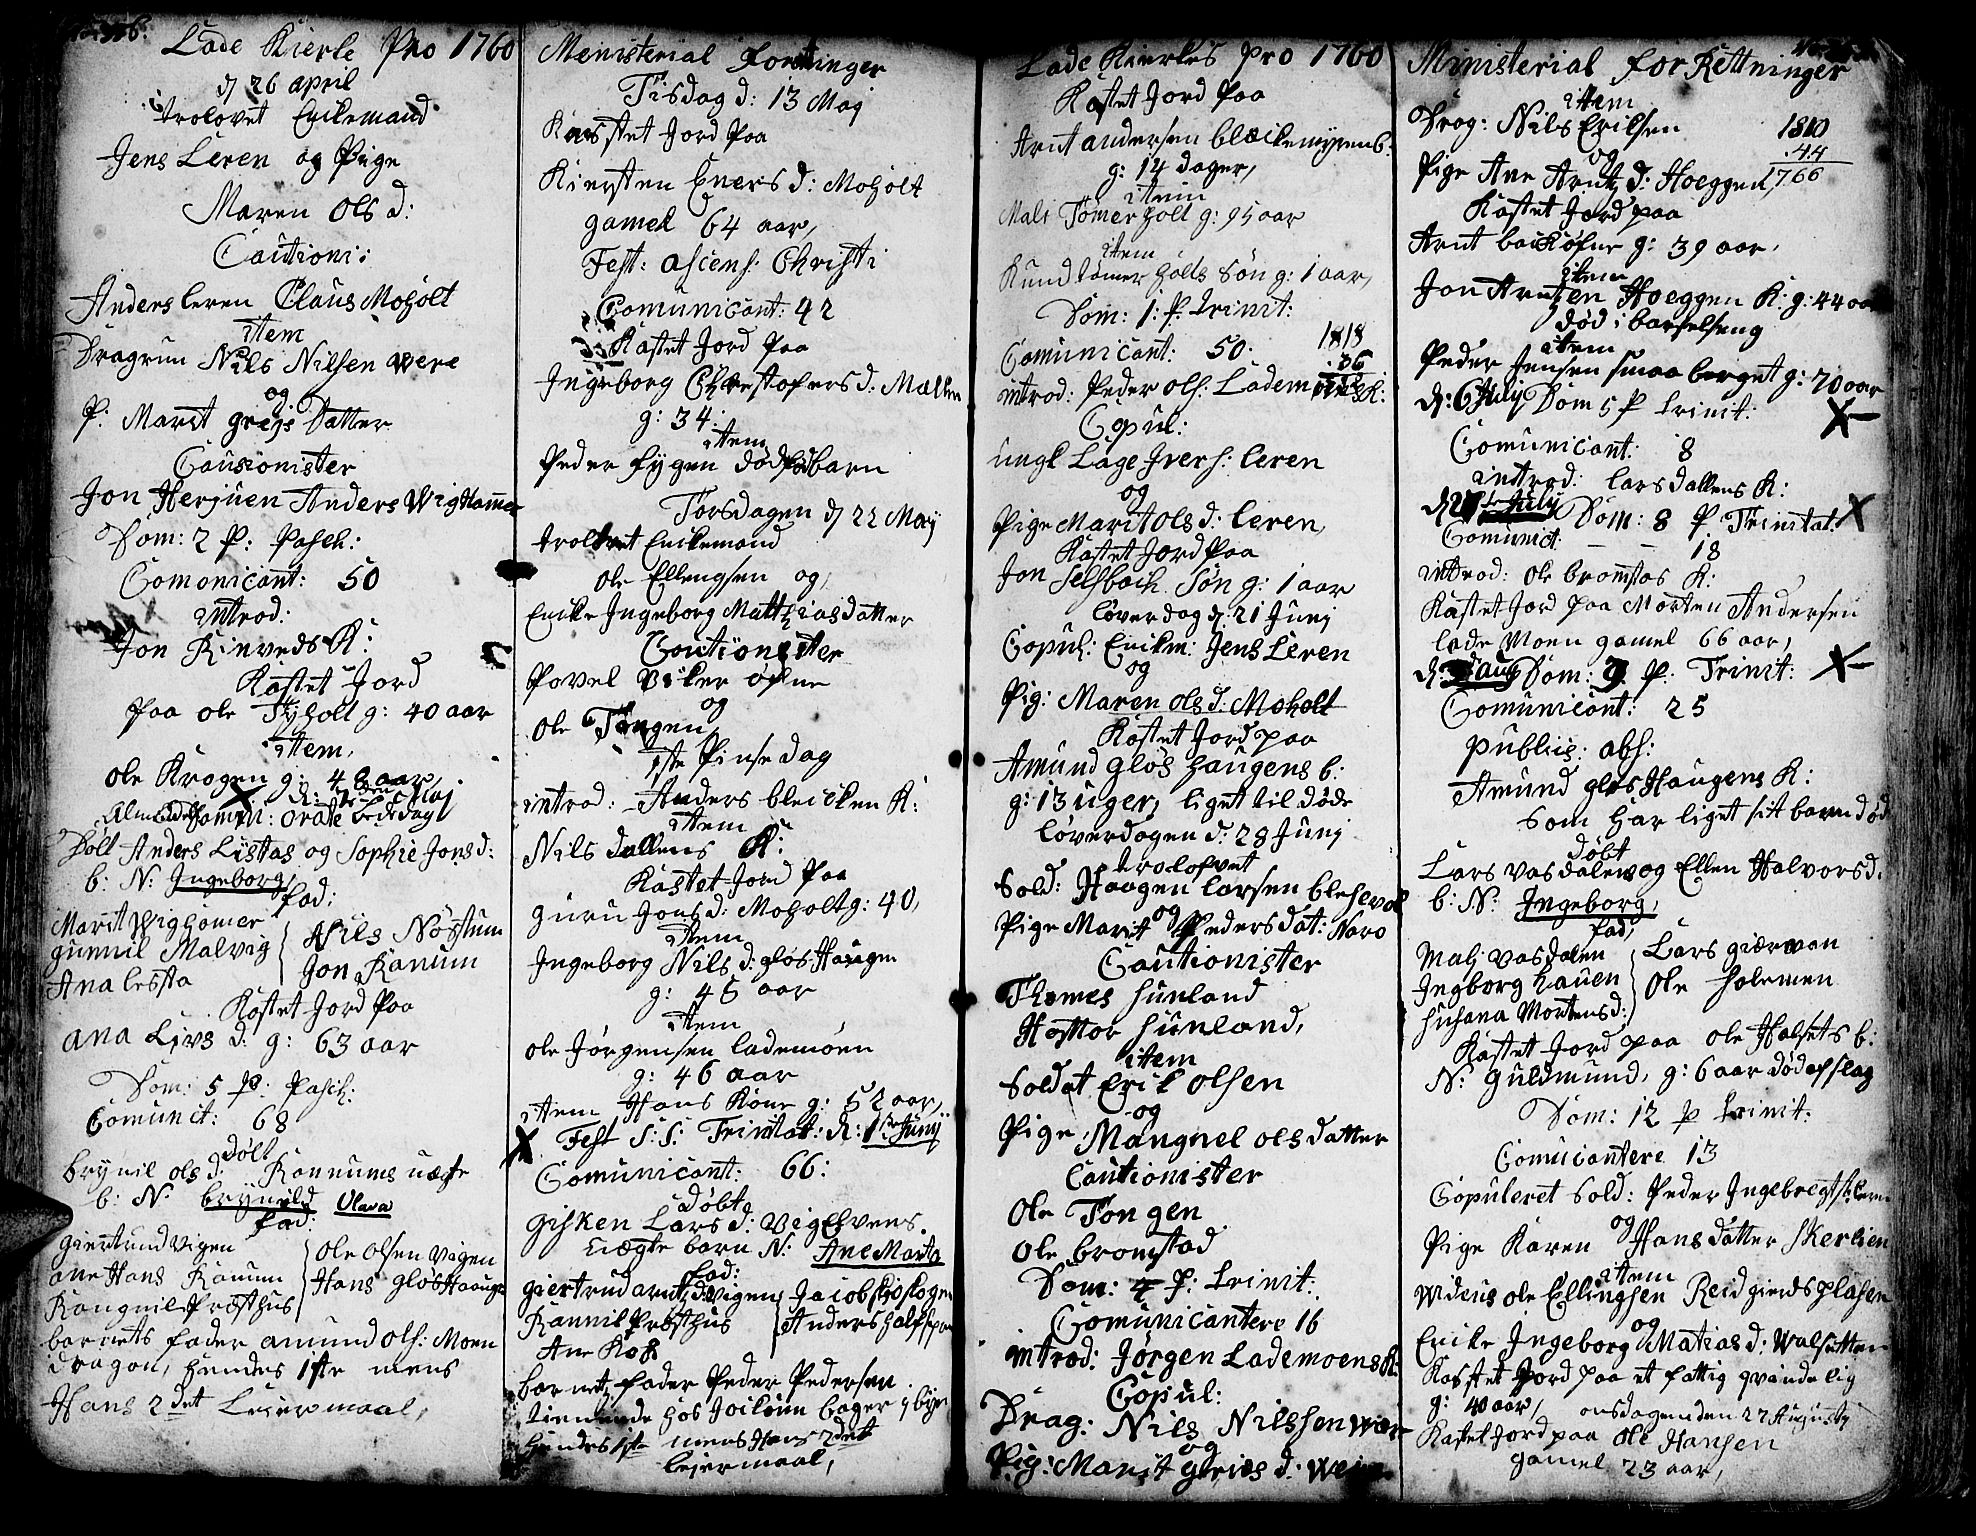 Lade Kierke Pro 1760
d 26 april
trolovet Enckemand
Jens Leren og Pige
Maren Ols d:
Cautioni:
Anders leren Claus Moholt
item
Dragrun Nils Nilsen were
og
P: Marit gregs Datter
Cautionister
Jon Herjuen Anders Wighamer
Dom: 2 P: Pasch:
Comonicant: 50
introd:
Jon Rinveds K:
Kastet Jord
paa ole Tyholt g: 40 aar
item,
ole Krogen g: 48 aar,
Døbt Anders Listas og Sophie Jons d:
b: N: Ingeborg,
fad:
Marit Wighamer
gunnil Malvig
Ana lessta
Nils Nøstum
Jon Ranum
Kastet Jord Paa
ana Livs d: g: 63 aar
Dom: 5 p: Pasch:
Comunict: 68
Døbt
brynil ols d: Rannums uægte
b: N: brynild Olava
fad:
giertrud vigen
ane Hans Ranum
Rangnil Præsthus
ole olsen vigen
Hans gløshauge
barnets fader amund ols: Moen
dragon, hendes 1ste mens
Hans 2det Leiermaal,
Menisterial Forretninger
Tisdag d: 13 Maj
Kasstet Jord Paa
Kiersten Eners d: Moholt
gamel 64 aar,
Fest: ascens: Christi
Comunicant: 42
Kastet Jord paa
Ingeborg Chrestofers d: Mællen
g: 34:
item
Peder fygen dødfød barn
Torsdagen d 22 Maij
trolovet Enckemand
ole Ellengsen og,
Encke Ingeborg Matthiasdatter
Cautionister
Povel Viker øfne
og
ole Tøngen
1ste Pinse dag
introd: Anders bleicken K:
item
Nils dallens K:
Kastet Jord Paa
guru Jons d: Moholt g: 40,
item
Ingeborg Nils d: gløshaugen
g: 45 aar
item
ole Jørgensen lademoen
g: 46 aar
item Hans Kone g: 52 aar,
Fest S: S: Trinitat: d: 1ste Juny
Comunicant: 66:
Døbt
gisken Lars d: Vigelvens
uægte barn N: Ane Marta
fad:
giertrud arntz d: vigen
Rannil Præsthus
Ane Kok
barnetz fader Peder Pedersen
tienende hos Joikim bager i byen
hendes 1ste mens Hans 2det
leiermaal,
Lade Kierkes pro 1760
Kastet Jord Paa
Arnt andersen blæckemyrens b:
g: 14 dager,
item
Mali Tømerholt g: 95 aar
item
Kund tømerholts Søn g: 1 aar,
Dom: 1: p: trinit:
Comunicant: 50. 1818
introd: Peder ols: Lademoens K:
Copul:
ungk Lage Ivers: leren
og
Pige Marit ols d: leren,
Kastet Jord Paa
Jon Selsbach Søn g: 1 aar
løverdag d: 21 Junj
Copul: Enckm: Jens Leren
og
Pig: Maren ols d: Moholt
Kastet Jord paa
Amund gløshaugens b:
g: 13 uger, liget til døde
løverdagen d: 28 Junj
trolofvet
Sold: Haagen larsen blesevol
og
Pige Marit Pedersdat: Naro
Cautionister
Thomes hunland
Hottor hunland,
item
Soldat Erik olsen
og
Pige Mangnel olsdatter
Cautionister
Ole Tøngen
ole bromstad
Dom: 4 P: trinit:
Comunicantere 16
introd: Jørgen Lademoens K:
Copul:
Drag: Nils Nilssen wær
og
Pig: Marit gries d: weie
Ministerial forRettninger
item
Drog: Nils Erilsen 1810
og .44
Pige Ane Arntz d: Hoeggen 1766
Kastet Jord paa
Arnt backøfne g: 39 aar,
item
Jon Arntzen Hoeggen K: g: 44 aar
død i barselseng
item
Peder Jensen smaa berget g: 70 aar
d: 6 July Dom 5 P trinit:
Comunicant: 8
introd: lars dallens K:
Dom: 8 P Trinitat:
Comunict. — — 18
introd: ole bromstas K:
Kastet Jord paa Morten Andersen
lade Moen gamel 66 aar,
Dom: 9 P. Trinit:
Comunicant: 25
publics: abs:
Amund gløshaugens K:
som har liget sit barn død
døbt
Lars vasdalen og Ellen Halvors d.
b: N: Ingeborg,
fad,
Mali vasdalen
Ingborg hauen
susana Mortens d:
Lars giærvan
Ole holemen
Kastet Jord paa ole Halsets b:
N: guldmund, g: 6 aar død af slag
Dom: 12 p trinit:
Comucantere 13
Copuleret Sold: Peder Ingebregts:
og
Pige Karen Hans datter Skerlien
item
Wideus ole Ellingsen Reidgierdsplasen
og
Encke Ingeborg Matias d: Walsetten
Kasstet Jord paa et fattig qvinde lig
g: 40 aar, onsdagen den 27 Augusty
Kastet Jord paa ole Hansen
gamel 23 aar,